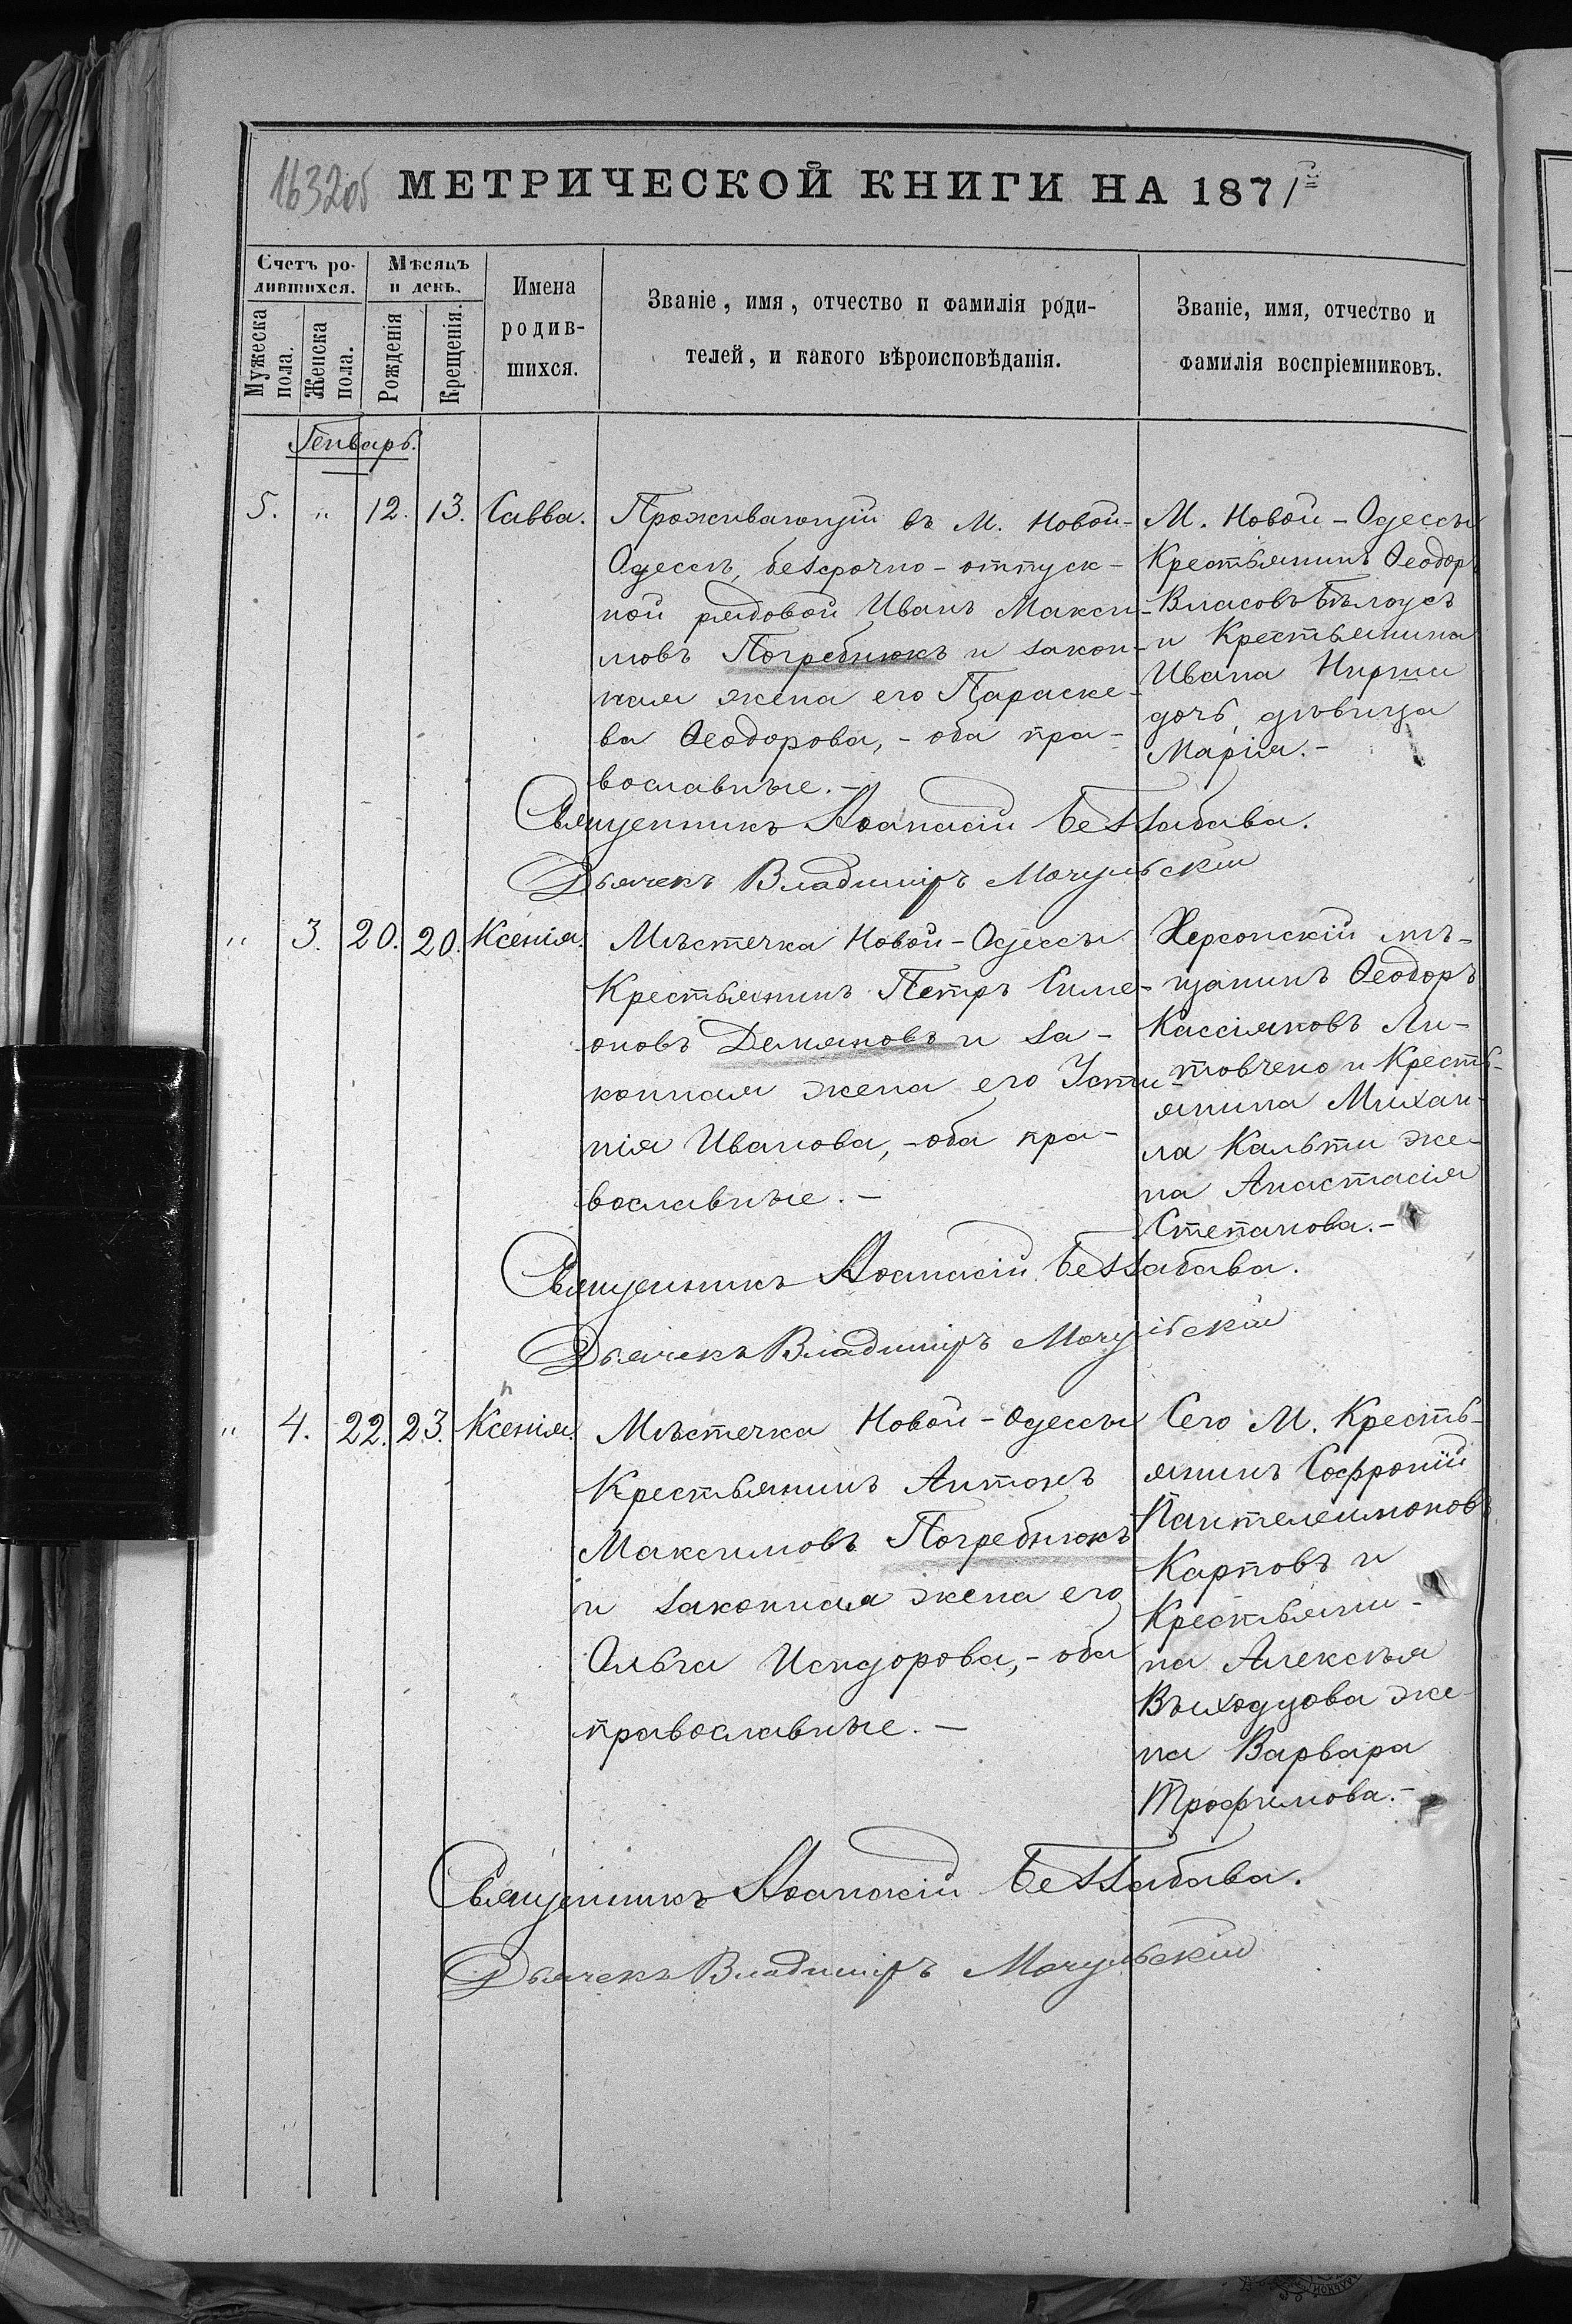 163205 МЕТРИЧЕСКОЙ КНИГИ НА 1871й
Счетъ ро-
дившихся.
Мѣсяцъ
и день.
Мужеска
пола.
Женска
пола.
Рожденія
Крещенія.
Имена
родив-
шихся.
Званіе, имя, отчество и фамилія роди-
телей, и какого вѣроисповѣданія.
Званіе, имя, отчество и
фамилія воспріемниковъ.
Генварь.
5. " 12. 13. Савва.
Проживающій въ М. Новой-
Одессѣ, безсрочно-отпуск-
ной рядовой Иванъ Макси-
мовъ Погребнюкъ и закон-
ная жена его Параске-
ва Ѳеодорова,- оба пра-
вославные.-
М. Новой-Одессы
Крестьянинъ Ѳеодоръ
Власовъ Бѣлоусъ
и Крестьянина
Ивана
дочь, дѣвица
Марія.-
Священникъ Аѳанасій Беззабава.
Дьячекъ Владиміръ Мочульскій
" 3. 20. 20. Ксенія.
Мѣстечка Новой-Одессы
Крестьянинъ Петръ Симе-
оновъ Демяновъ и за-
конная жена его Усти-
нія Иванова,-оба пра-
вославные.-
Херсонскій мѣ-
щанинъ Ѳеодоръ
Кассіяновъ Ли-
товчено и Кресть-
янина Михаи-
ла Кальти же-
на Анастасія
Степанова.-
Священникъ Аѳанасій Беззабава.
Дьячекъ Владиміръ Мочульскій
" 4. 22. 23. Ксенія.
Мѣстечка Новой-Одессы
Крестьянинъ Антонъ
Максимовъ Погребнюкъ
и законная жена его
Ольга Исидорова,- оба
православные.-
Сего М. Кресть-
янинъ Софроній
Пантелеимоновъ
Карповъ и
Крестьяни-
на Алексѣя
Выходцова же-
на Варвара
Трофимова.-
Священникъ Аѳанасій Беззабава.
Дьячекъ Владиміръ Мочульскій